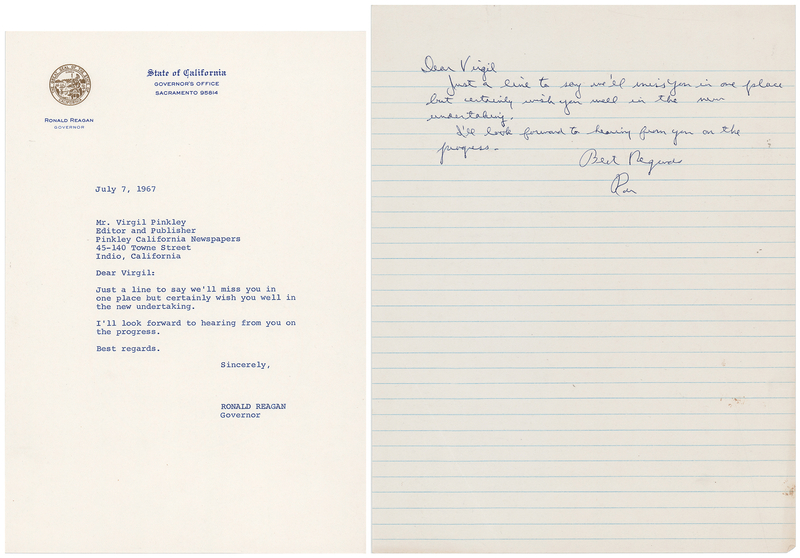 State of California
GOVERNOR'S OFFICE
SACRAMENTO 95814
RONALD REAGAN
GOVERNOR
July 7, 1967
Mr. Virgil Pinkley
Editor and Publisher
Pinkley California Newspapers
45-140 Towne Street
Indio, California
Dear Virgil:
Just a line to say we'll miss you in
one place but certainly wish you well in
the new undertaking.
I'll look forward to hearing from you on
the progress.
Best regards.
Sincerely,
RONALD REAGAN
Governor
Dear Virgil
Just a line to say we'll miss you in one place
but certainly wish you well in the new
undertaking.
I'll look forward to hearing from you on the
progress.
Best Regards
Ron